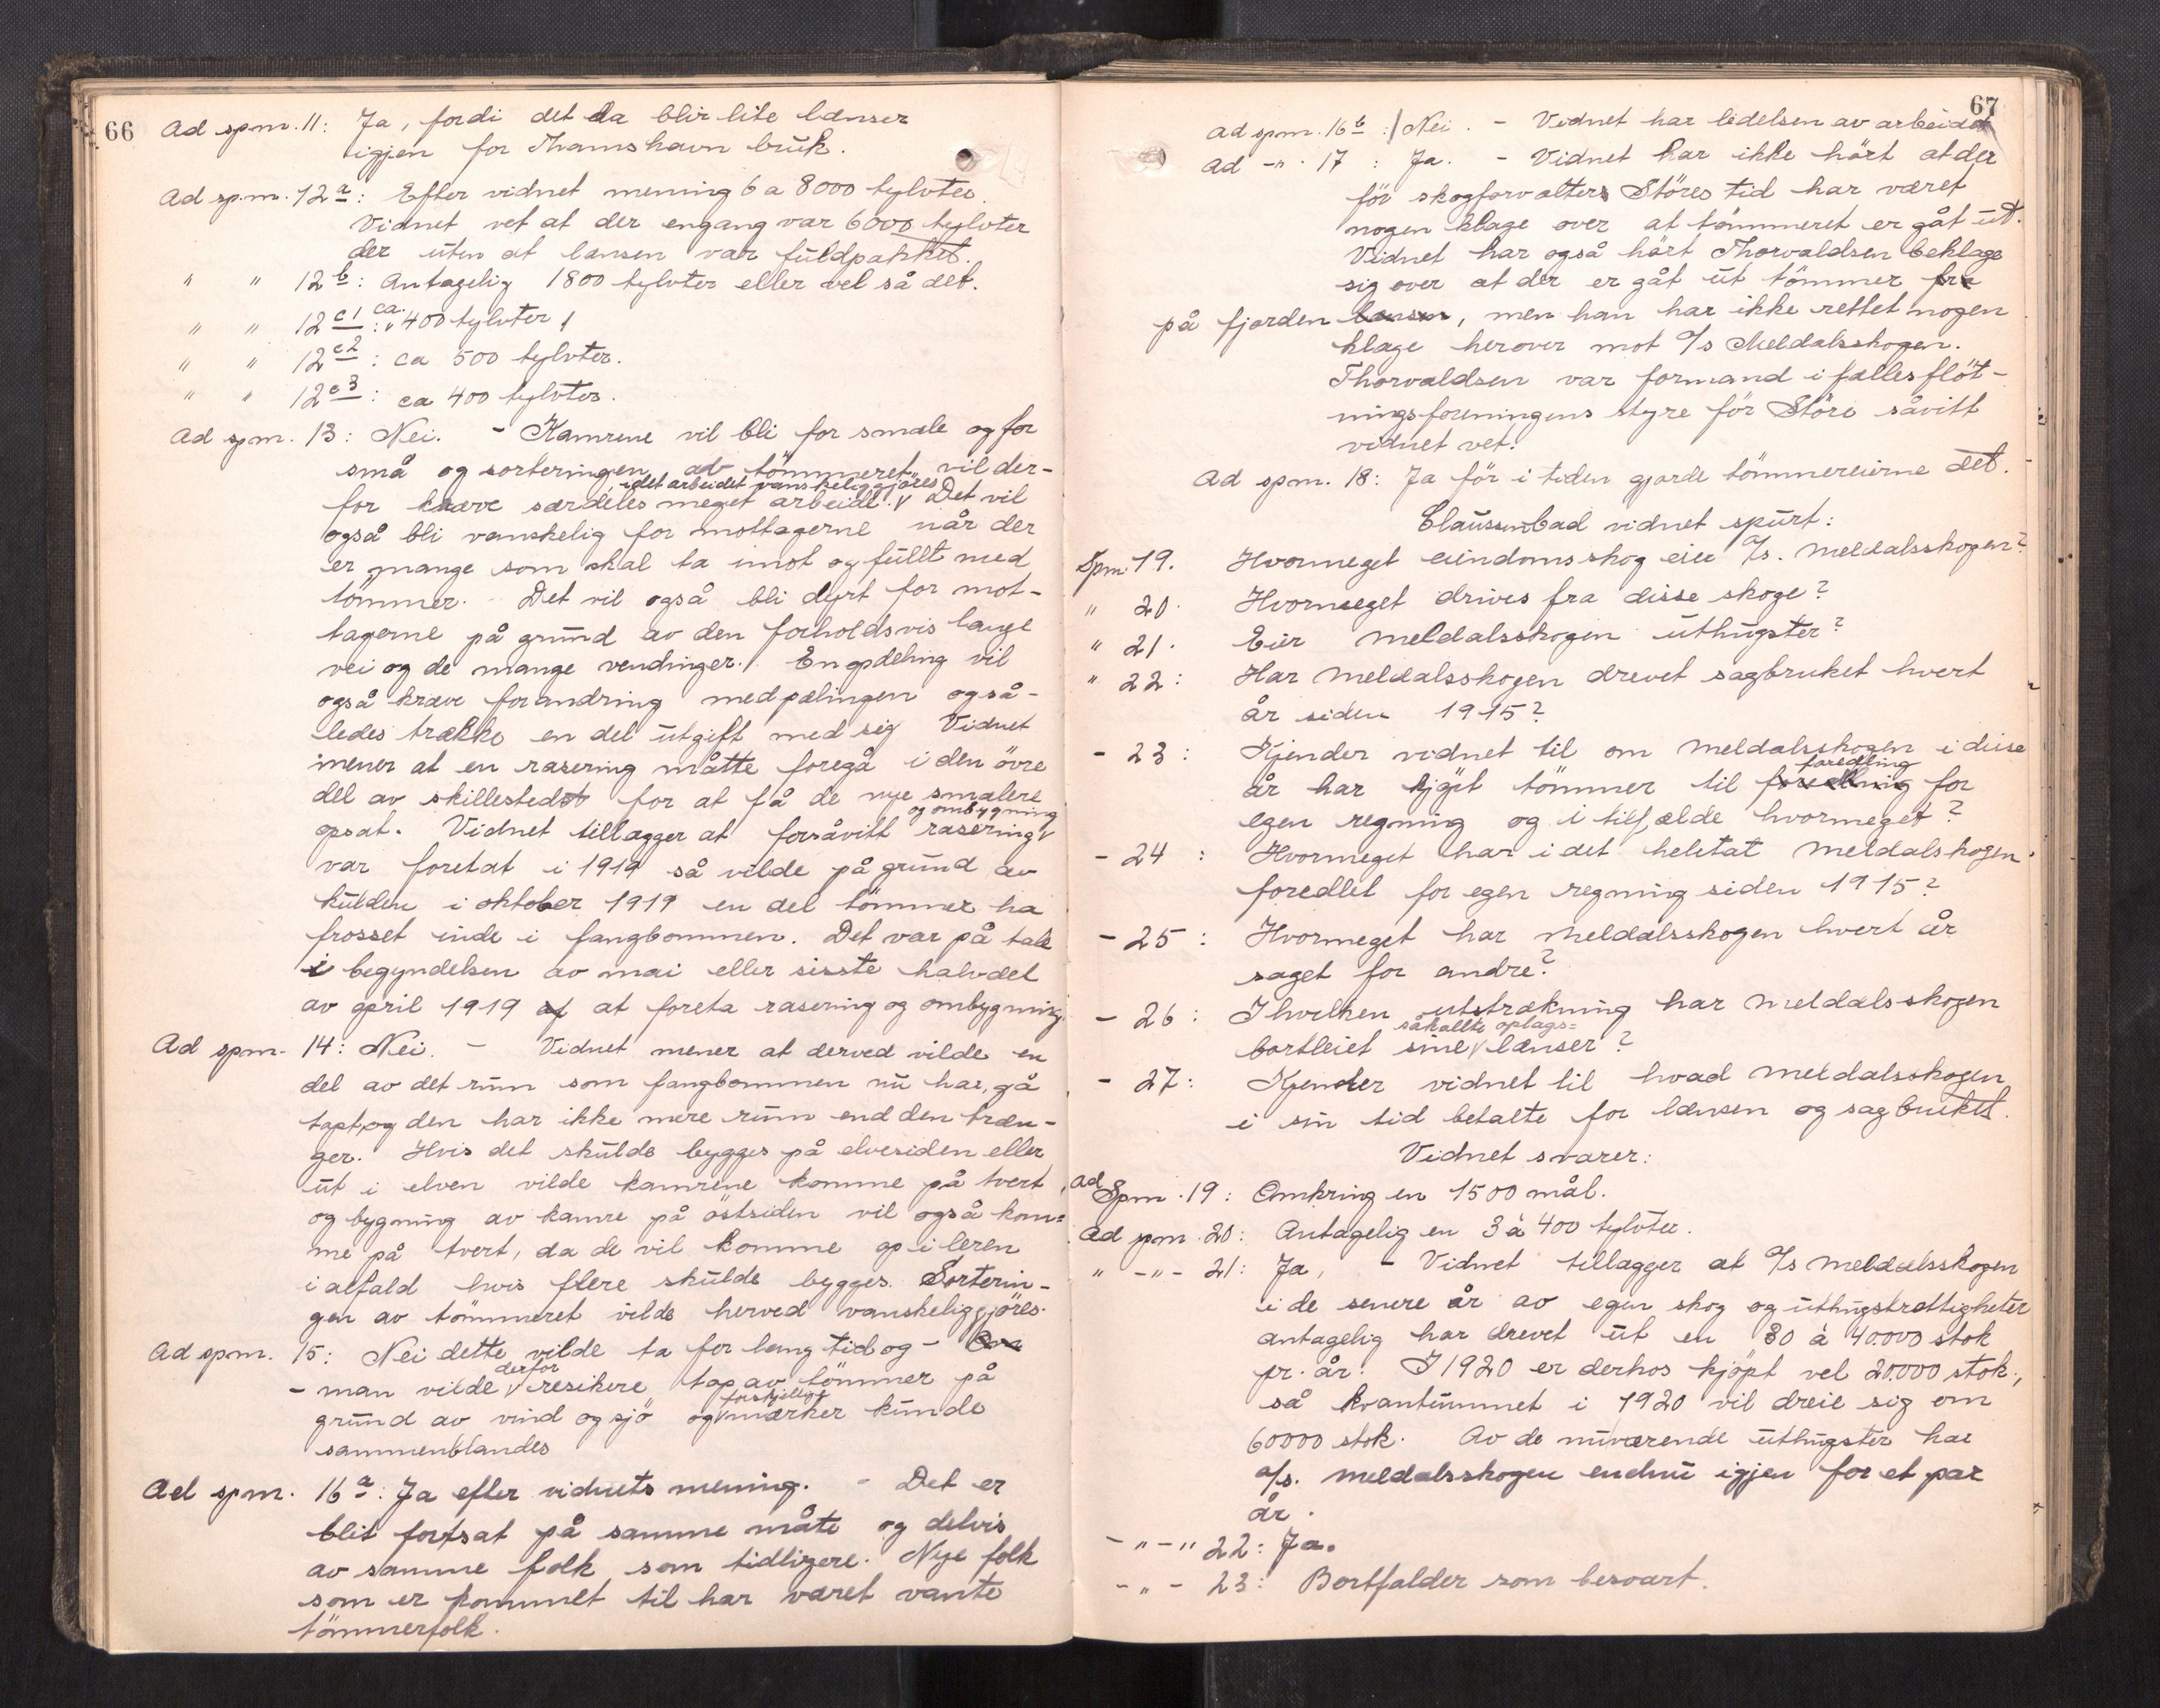 66
Ad spm. 11: Ja, fordi det da blir lite lænser
igjen for Thamshavn bruk.
Ad spm. 12a: Efter vidnet mening 6 a 8000 tylvter.
Vidnet vet at der engang var 6000 tylvter
der uten at lænsen var fuldpakket.
" " 12b: Antagelig 1800 tylvter eller vel så det.
" " 12c1: ca. 400 tylvter
" " 12c2: ca 500 tylvter.
" " 12c3: ca 400 tylvter.
Ad spm. 13: Nei. - Kamrene vil bli for smale og for
små og sorteringen av tömmeret vil der-
, idet arbeidet vanskeliggjöres
for kræve særdeles meget arbeide. V Det vil
også bli vanskelig for mottagerne når der
er mange som skal ta imot og fullt med
tömmer. Det vil også bli dyrt for mot-
tagerne på grund av den forholdsvis lange
vei og de mange vendinger. En opdeling vil
også kræve forandring med pælingen også-
ledes trække en del utgift med sig Vidnet
mener at en rasering måtte foregå i den övre
del av skillestedet for at få de nye smalere
og ombygning
opsat. Vidnet tillægger at forsåvitt rasering V
var foretat i 1919 så vilde på grund av
kulden i oktober 1919 en del tömmer ha
frosset inde i fangbommen. Det var på tale
i begyndelsen av mai eller sisste halvdel
av april 1919 af at foreta rasering og ombygning.
Ad spm. 14: Nei. - Vidnet mener at derved vilde en
del av det rum som fangbommen nu har, gå
tapt, og den har ikke mere rum end den træn-
ger. Hvis det skulde bygges på elvesiden eller
ut i elven vilde kamrene komme på tvert,
og bygning av kamre på östsiden vil også kom=
me på tvert, da de vil komme op i leren
i alfald hvis flere skulde bygges. Sorterin-
gen av tömmeret vilde herved vanskeliggjöres.
Ad spm. 15: Nei dette vilde ta for lang tid og -
derfor
- man vilde V resikere tap av tömmer på
forskjellige
grund av vind og sjö og V mærker kunde
sammenblandes
Ad spm. 16a: Ja efter vidnets mening. - Det er
blit fortsat på samme måte og delvis
av samme folk som tidligere. Nye folk
som er kommet til har været vante
tömmerfolk.
67
Ad spm. 16b: Nei. - Vidnet har ledelsen av arbeidet
Ad -"- 17: Ja. - Vidnet har ikke hört at der
för skogforvalters Störes tid har været
nogen klage over at tömmeret er gåt ut.
Vidnet har også hört Thorvaldsen beklage
sig over at der er gåt ut tömmer fra
på fjorden lænsen, men han har ikke rettet nogen
klage herover mot A/s Meldalsskogen.
Thorvaldsen var formand i fællesflöt-
ningsforeningens styre för Störe såvitt
vidnet vet.
Ad spm. 18: Ja för i tiden gjorde tömmereierne det.
Claussen bad vidnet spurt:
Spm. 19. Hvormeget eiendomsskog eier A/s. Meldalsskogen?
" 20. Hvormeget drives fra disse skoge?
" 21. Eier Meldalsskogen uthugster?
" 22: Har Meldalsskogen drevet sagbruket hvert
år siden 1915?
- 23: Kjender vidnet til om Meldalsskogen i disse
foredling
år har kjöpt tömmer til foredlnig for
egen regning og i tilfælde hvormeget?
- 24: Hvormeget har i det heletat Meldalskogen
foredlet for egen regning siden 1915?
- 25: Hvormeget har Meldalsskogen hvert år
saget for andre?
- 26: I hvilken utstrækning har Meldalsskogen
såkallte oplags=
bortleiet sine V lænser?
- 27: Kjender vidnet til hvad Meldalsskogen
i sin tid betalte for lænsen og sagbruket.
Vidnet svarer:
Ad Spm. 19: Omkring en 1500 mål.
Ad spm. 20: Antagelig en 3 à 400 tylvter.
" -"- 21: Ja, - Vidnet tillægger at A/s Meldalsskogen
i de senere år av egen skog og uthugstrettigheter
antagelig har drevet ut en 30 à 40.000 stok
pr. år. I 1920 er derhos kjöpt vel 20.000 stok,
så kvantummet i 1920 vil dreie sig om
60000 stok. Av de nuværende uthugster har
A/s. Meldalsskogen endnu igjen for et par
år.
-"-" 22: Ja.
-"- 23: Bortfalder som besvart.